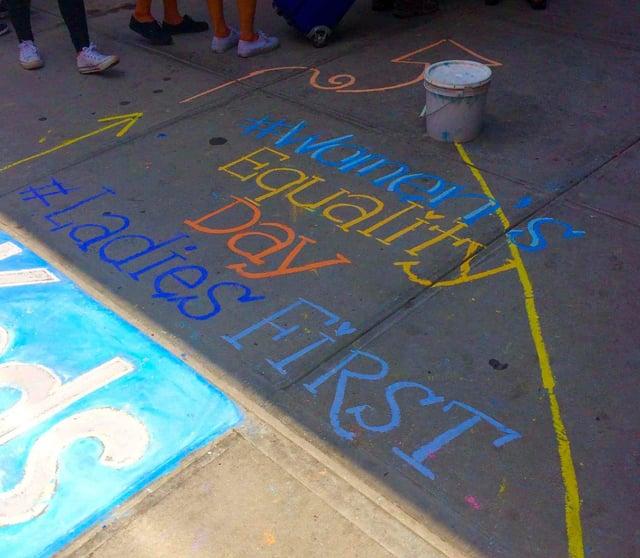 #Women's
Equality
Day
#Ladies
FiRST